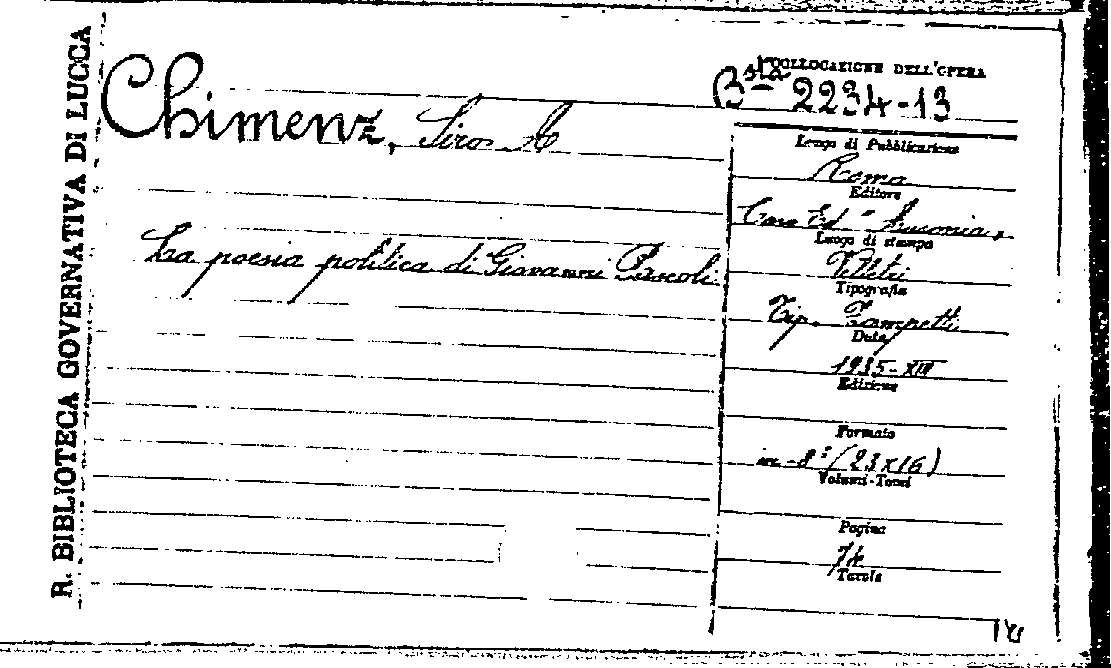 R. BIBLIOTECA GOVERNATIVA DI LUCCA
Chimenz, Siro A
La poesia politica di Giovanni Pascoli.
COLLOCAZIONE DELL'OPERA
Bsta 2234-13
Luogo di Pubblicazione
Roma
Editore
Casa Ed. Ausonia.
Luogo di stampa
Velletri
Tipografia
Tip. Zampetti
Data
1935-XIII
Edizione
Formato
in-8º (23x16)
Volumi-Tomi
Pagine
74
Tavole